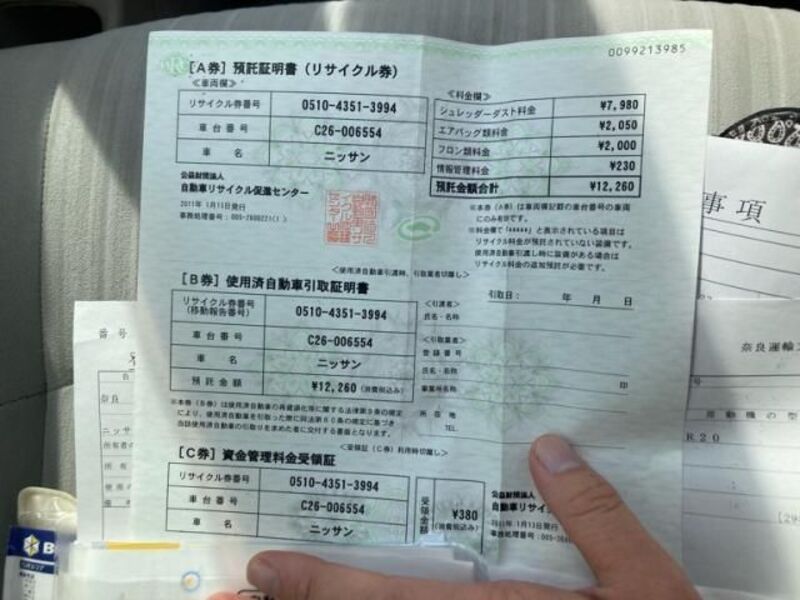 0099213985
[A券] 預託証明書（リサイクル券）
≪車両欄≫
リサイクル券番号 0510-4351-3994
車台番号 C26-006554
車名 ニッサン
≪料金欄≫
シュレッダーダスト料金 ¥7,980
エアバッグ類料金 ¥2,050
フロン類料金 ¥2,000
情報管理料金 ¥230
預託金額合計 ¥12,260
公益財団法人
自動車リサイクル促進センター
2011年 1月13日発行
※本券（A券）は車両欄記載の車台番号の車両
にのみ有効です。
※料金欄で「*****」と表示されている項目は
リサイクル料金が預託されていない装備です。
使用済自動車引渡し時に装備がある場合は
リサイクル料金の追加預託が必要です。
＜使用済自動車引渡時、引取業者切離し＞
[B券] 使用済自動車引取証明書
引取日： 年 月 日
リサイクル券番号
(移動報告番号) 0510-4351-3994
車台番号 C26-006554
車名 ニッサン
預託金額 ¥12,260 (消費税込み)
＜引渡者＞
氏名・名称
＜引取業者＞
登録番号
氏名・名称
印
事業所名称
所在地
TEL.
※本券（B券）は使用済自動車の再資源化等に関する法律第9条の規定
により、使用済自動車を引取った際に同法第80条の規定に基づき
当該使用済自動車の引取りを求めた者に交付する書面となります。
＜受領証（C券）利用時切離し＞
[C券] 資金管理料金受領証
リサイクル券番号 0510-4351-3994
車台番号 C26-006554
車名 ニッサン
受領金額 ¥380
(消費税込み)
公益財団法人
自動車リサイ
2011年 1月13日発行
事項
奈良運輸
番号
奈良
ニッサ
所有者の
R20